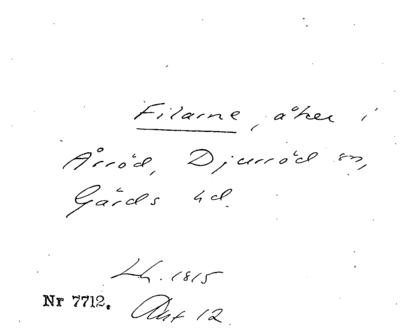 Filarne, åker i
Årröd, Djurröd sn,
Gärds hd.
Lh. 1815
Nr 7712. Akt 12